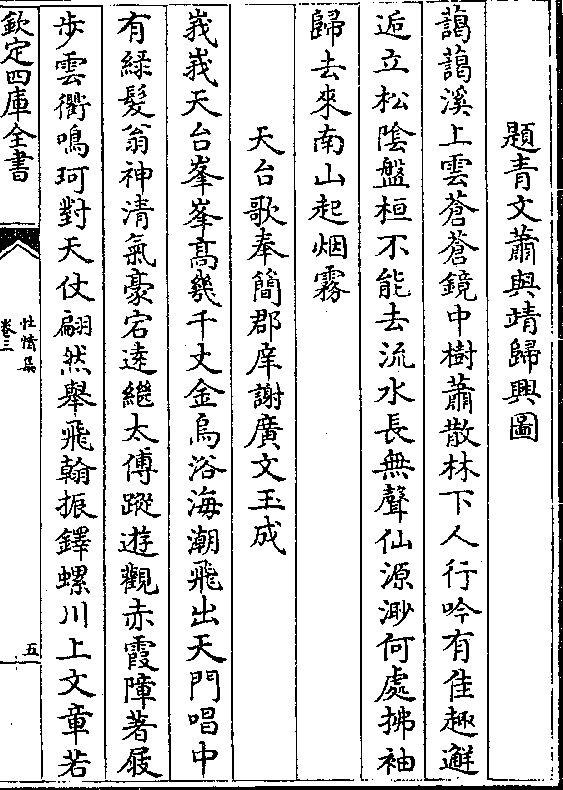 題青文蕭與靖歸興圖
藹藹溪上雲蒼蒼鏡中樹蕭散林下人行吟有佳趣邂
逅立松陰盤桓不能去流水長無聲仙源渺何處拂袖
歸去來南山起烟霧
天台歌奉簡郡庠謝廣文玉成
峩峩天台峯峯髙幾千丈金烏浴海潮飛出天門唱中
有緑髮翁神清氣豪宕逺繼太傅蹤遊觀赤霞障著屐
步雲衢鳴珂對天仗翩然舉飛翰振鐸螺川上文章若
欽定四庫全書
性情集
卷三
五